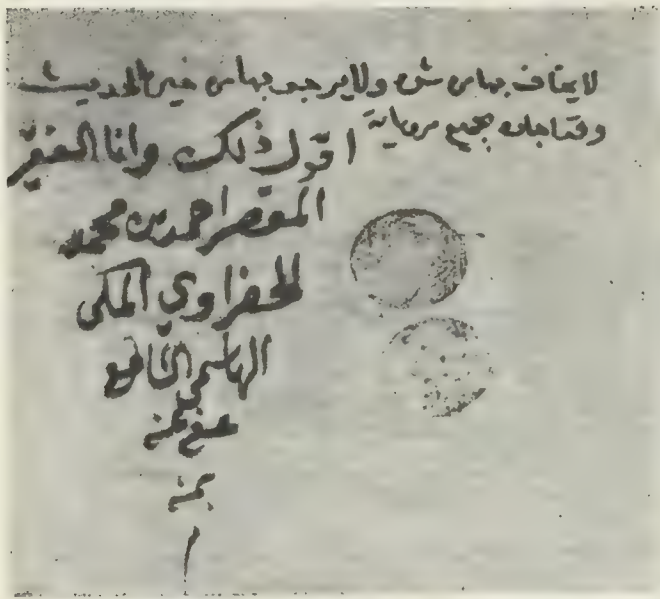 لا يخاف بها من شر ولا يرجو بها من خير الحديث
وقد اجازه بجميع مروياته
اقول ذلك وانا الفقير
المقصر احمد بن محمد
الحضراوي المكي
الهاشمي الشافعي
عفي عنه
بمنه
م